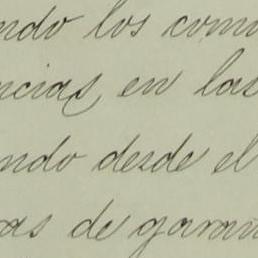 ndo los comi
ncias en las
ndo desde el
as de garan